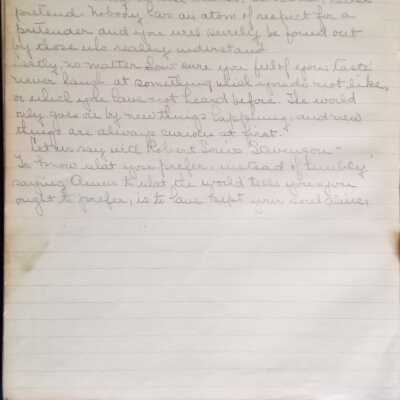 pretend. Nobody has an atom of respect for a
pretender and you will surely be found out
by those who really understand
Lastly, no matter how sure you feel of your taste
never laugh at something which you do not like,
or which you have not heard before. The world
only goes on by new things happening, and new
things are always curious at first."
Let us say with Robert Louis Stevenson "
To know what you prefer, instead of humbly
saying Amen to what the world tells you you
ought to prefer, is to have kept your soul alive.